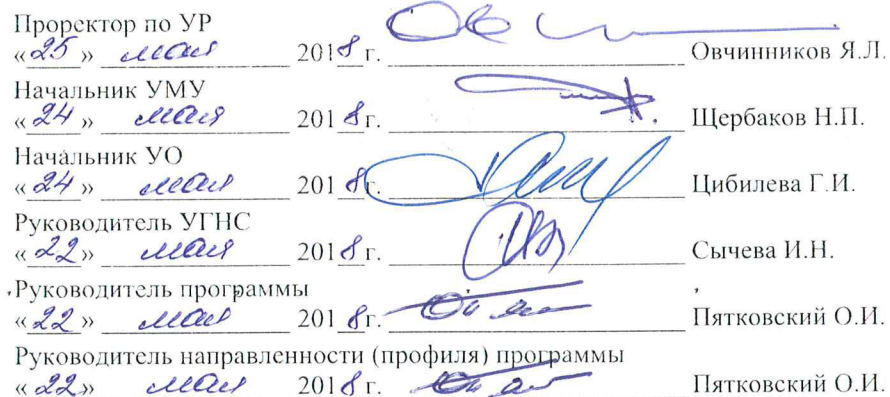 Проректор по УР
«25» мая 2018г. Овчинников Я.Л.
Начальник УМУ
«24» мая 2018г. Щербаков Н.П.
Начальник УО
«24» мая 2018г. Цибилева Г.И.
Руководитель УГНС
«22» мая 2018г. Сычева И.Н.
Руководитель программы
«22» мая 2018г. Пятковский О.И.
Руководитель направленности (профиля) программы
«22» мая 2018г. Пятковский О.И.